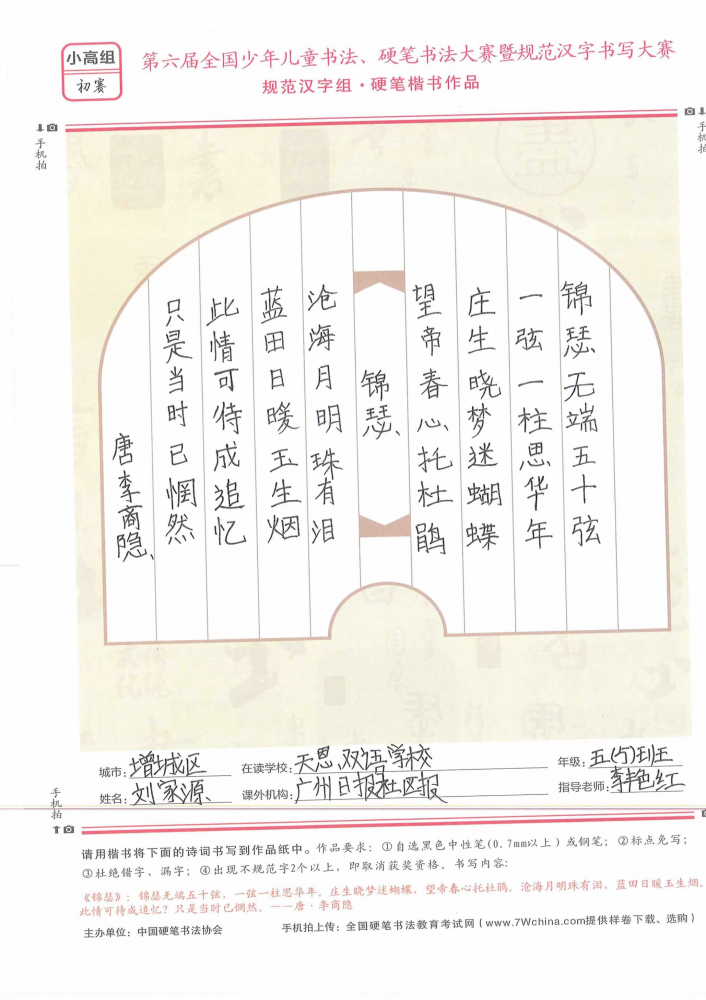 小高组
初赛
第六届全国少年儿童书法、硬笔书法大赛暨规范汉字书写大赛
规范汉字组·硬笔楷书作品
手机拍
手机拍
锦瑟无端五十弦
一弦一柱思华年
庄生晓梦迷蝴蝶
望帝春心托杜鹃
锦瑟
沧海月明珠有泪
蓝田日暖玉生烟
此情可待成追忆
只是当时已惘然
唐李商隐
城市：增城区
在读学校：天恩双语学校
年级：五(六)班
姓名：刘家源
课外机构：广州日报社区报
指导老师：李艳红
手机拍
请用楷书将下面的诗词书写到作品纸中。作品要求：①自选黑色中性笔(0.7mm以上)或钢笔；②标点免写；
③杜绝错字、漏字；④出现不规范字2个以上，即取消获奖资格。书写内容：
《锦瑟》：锦瑟无端五十弦，一弦一柱思华年。庄生晓梦迷蝴蝶，望帝春心托杜鹃。沧海月明珠有泪，蓝田日暖玉生烟。
此情可待成追忆？只是当时已惘然。——唐·李商隐
主办单位：中国硬笔书法协会
手机拍上传：全国硬笔书法教育考试网（www.7Wchina.com提供样卷下载、选购）